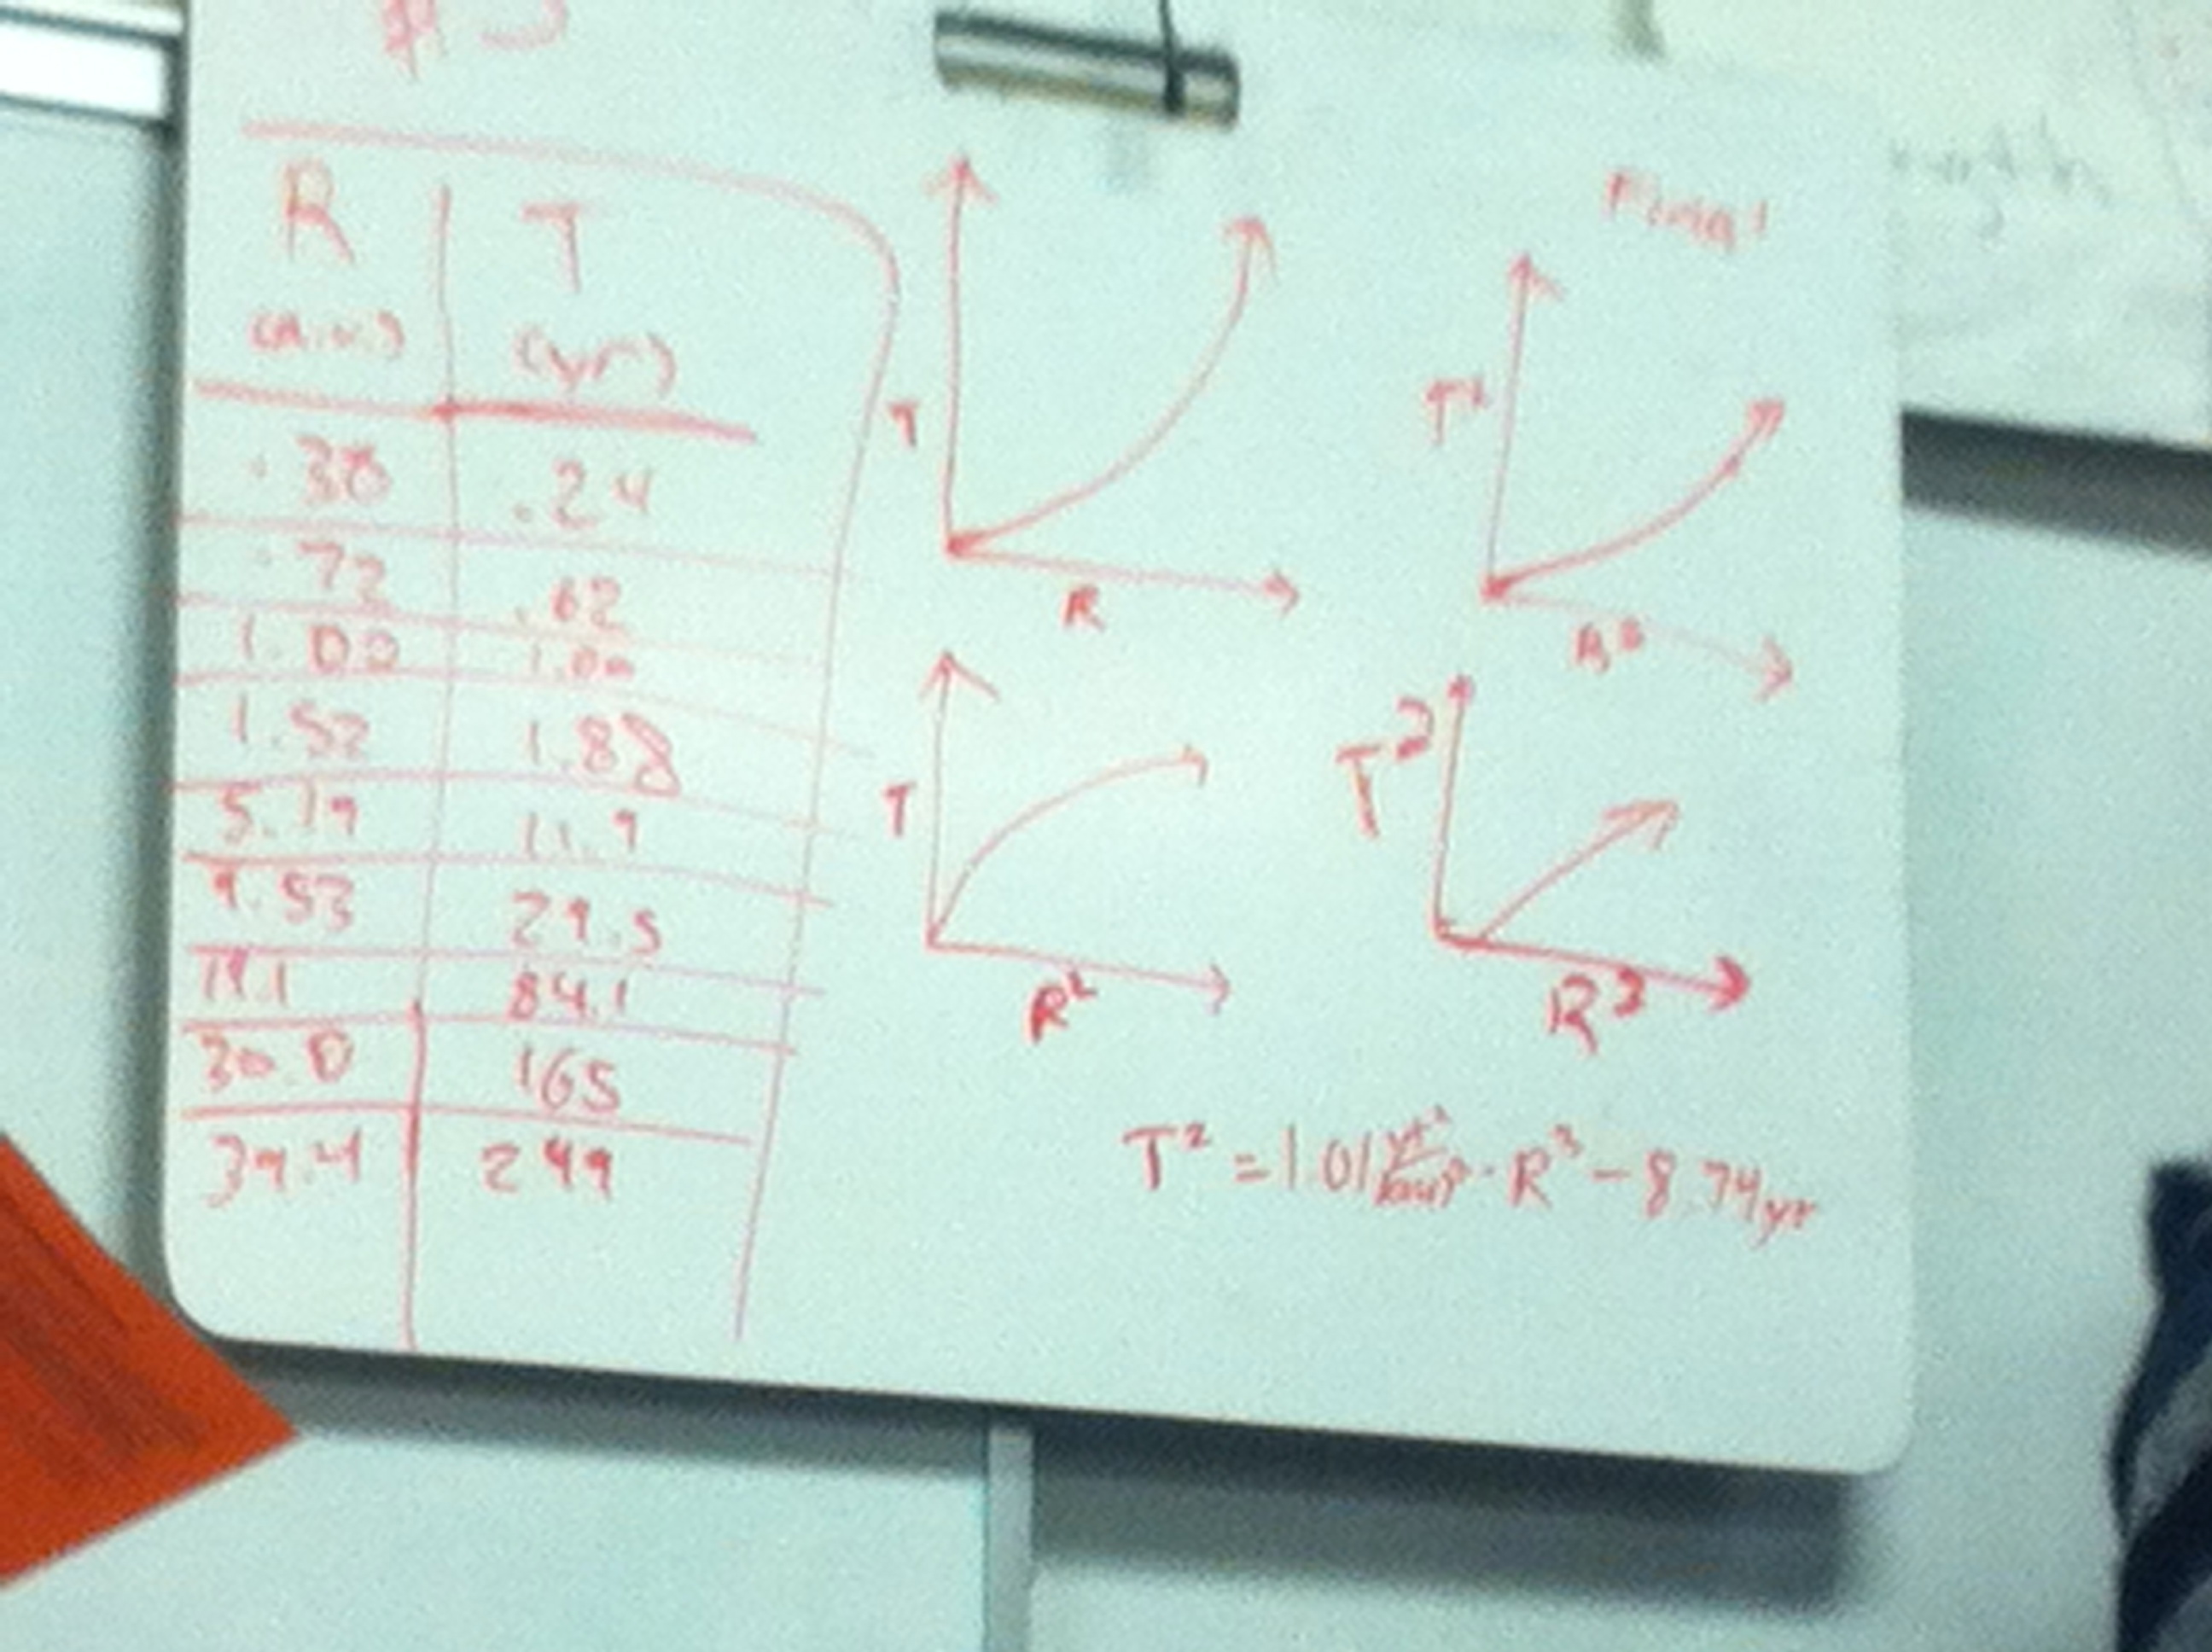 #3
R T
(A.U.) (yr)
.38 .24
.72 .62
1.00 1.00
1.52 1.88
5.19 11.9
9.53 29.5
19.1 84.1
30.0 165
39.4 249
T
R
T
R²
T²
T²
R³
T² = 1.01 yr²/(AU)³ · R³ - 8.74yr